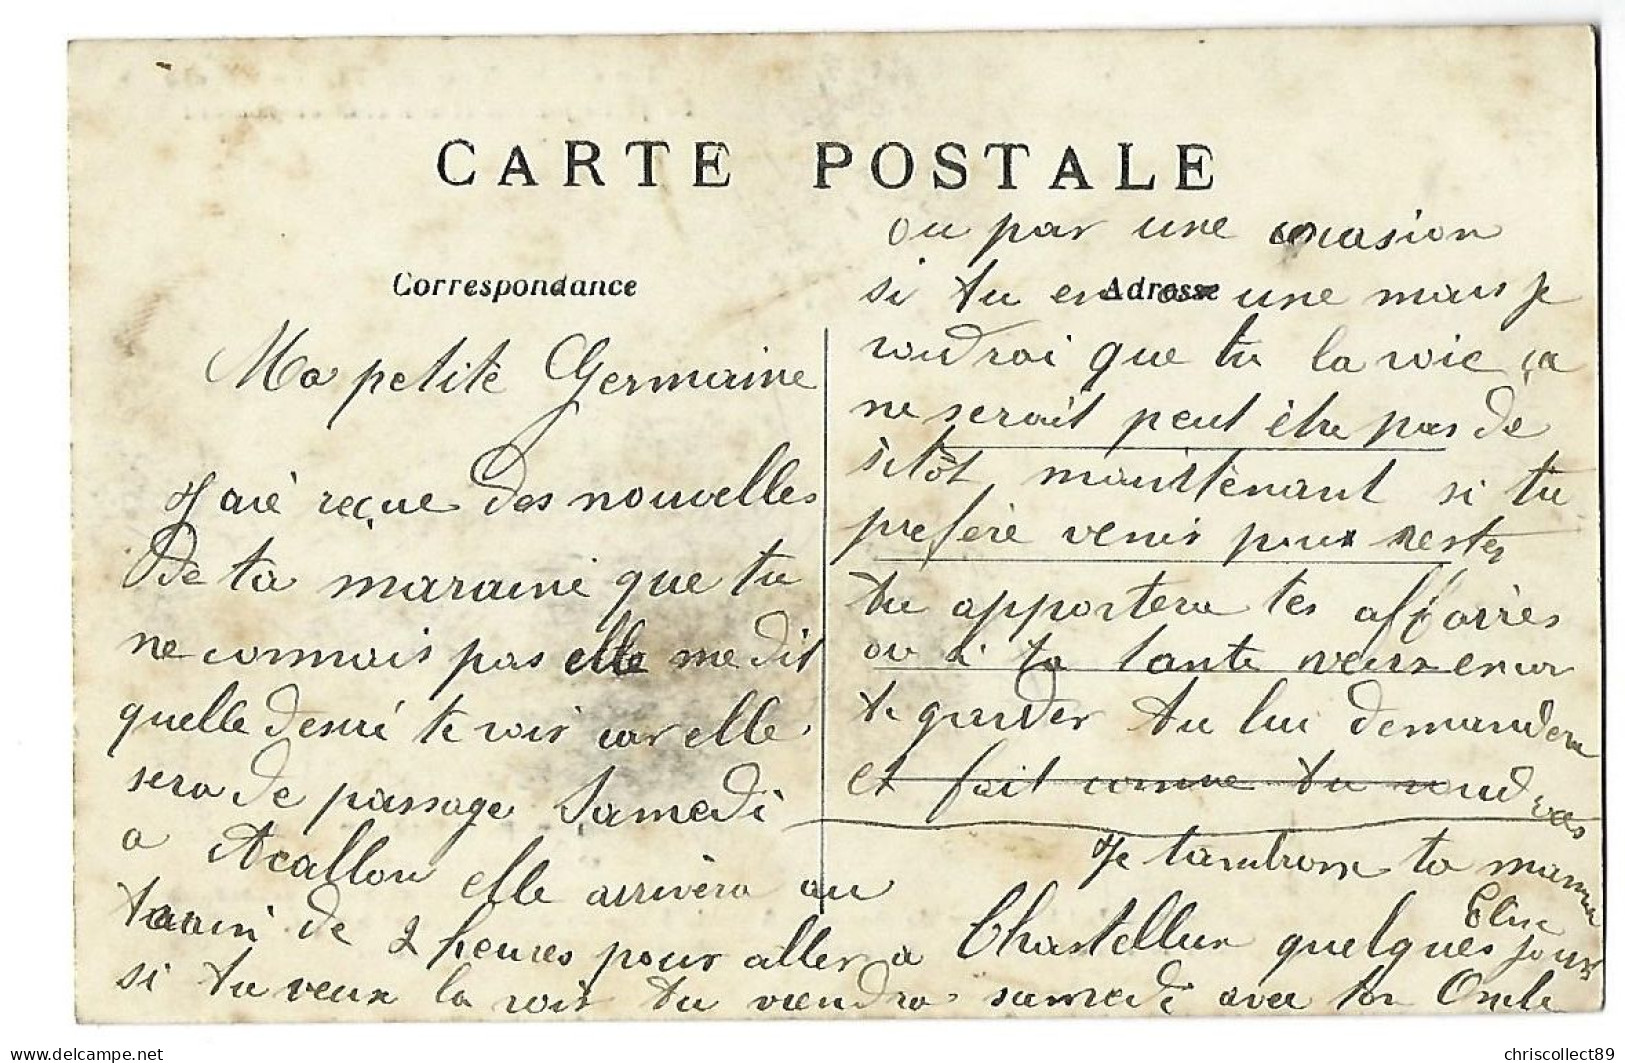 CARTE POSTALE
Correspondance
Adresse
Ma petite Germaine
J aie reçue des nouvelles
de ta maraine que tu
ne connais pas elle me dit
quelle desire te voir car elle
sera de passage Samedi
a Avallon elle arrivera au
train de 2 heures pour aller a Chastellux quelques jours
si tu veux la voir tu viendra samedi avec ton Oncle
ou par une occasion
si tu en a une mais je
voudrai que tu la voie ça
ne serait peut être pas de
sitôt maintenant si tu
prefere venir pour rester
tu apportera tes affaires
ou si ta tante veux encor
te garder tu lui demandera
et fait comme tu voudras
Je tambrasse ta maman
Elise
chriscollect89
delcampe.net